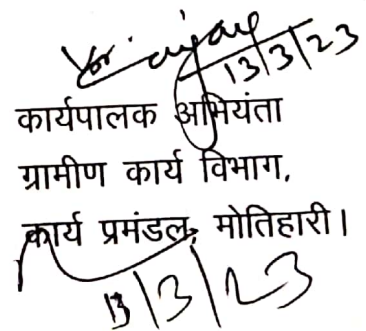 13/3/23
कार्यपालक अभियंता
ग्रामीण कार्य विभाग,
कार्य प्रमंडल, मोतिहारी।
13/3/23